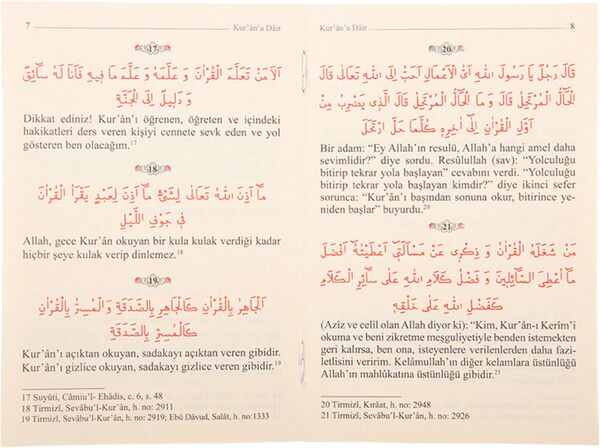 7
Kur’ân’a Dâir
17
اَلَا مَنْ تَعَلَّمَ الْقُرْاٰنَ وَ عَلَّمَهُ وَ عَلَّمَ مَا فٖيهِ فَاَنَا لَهُ سَٓائِقٌ
وَ دَلٖيلٌ اِلَى الْجَنَّةِ
Dikkat ediniz! Kur’ân’ı öğrenen, öğreten ve içindeki
hakikatleri ders veren kişiyi cennete sevk eden ve yol
gösteren ben olacağım.17
18
مَٓا اَذِنَ اللّٰهُ تَعَالٰى لِشَيْءٍ مَٓا اَذِنَ لِعَبْدٍ يَقْرَأُ الْقُرْاٰنَ
فٖى جَوْفِ اللَّيْلِ
Allah, gece Kur’ân okuyan bir kula kulak verdiği kadar
hiçbir şeye kulak verip dinlemez.18
19
اَلْجَاهِرُ بِالْقُرْاٰنِ كَالْجَاهِرِ بِالصَّدَقَةِ وَ الْمُسِرُّ بِالْقُرْاٰنِ
كَالْمُسِرِّ بِالصَّدَقَةِ
Kur’ân’ı açıktan okuyan, sadakayı açıktan veren gibidir.
Kur’ân’ı gizlice okuyan, sadakayı gizlice veren gibidir.19
17 Suyûti, Câmiu’l- Ehâdis, c. 6, s. 48
18 Tirmizî, Sevâbu’l-Kur’ân, h. no: 2911
19 Tirmizî, Sevâbu’l-Kur’ân, h. no: 2919; Ebû Dâvud, Salât, h. no:1333
Kur’ân’a Dâir
8
20
قَالَ رَجُلٌ يَا رَسُولَ اللّٰهِ اَىُّ الْاَعْمَالِ اَحَبُّ اِلَى اللّٰهِ تَعَالٰى قَالَ
اَلْحَالُّ الْمُرْتَحِلُ قَالَ وَ مَا الْحَالُّ الْمُرْتَحِلُ قَالَ الَّذٖى يَضْرِبُ مِنْ
اَوَّلِ الْقُرْاٰنِ اِلٰٓى اٰخِرِهٖ كُلَّمَا حَلَّ ارْتَحَلَ
Bir adam: “Ey Allah’ın resulü, Allah’a hangi amel daha
sevimlidir?” diye sordu. Resûlullah (sav): “Yolculuğu
bitirip tekrar yola başlayan” cevabını verdi. “Yolculuğu
bitirip tekrar yola başlayan kimdir?” diye ikinci sefer
sorunca: “Kur’ân’ı başından sonuna okur, bitirince ye-
niden başlar” buyurdu.20
21
مَنْ شَغَلَهُ الْقُرْاٰنُ وَ ذِكْرٖى عَنْ مَسْأَلَتٖى اَعْطَيْتُهُٓ اَفْضَلَ
مَٓا اُعْطِى السَّٓائِلٖينَ وَ فَضْلُ كَلَامِ اللّٰهِ عَلٰى سَٓائِرِ الْكَلَامِ
كَفَضْلِ اللّٰهِ عَلٰى خَلْقِهٖ
(Azîz ve celîl olan Allah diyor ki): “Kim, Kur’ân-ı Kerîm’i
okuma ve beni zikretme meşguliyetiyle benden istemekten
geri kalırsa, ben ona, isteyenlere verilenlerden daha fazi-
letlisini veririm. Kelâmullah’ın diğer kelamlara üstünlüğü
Allah’ın mahlûkatına üstünlüğü gibidir.21
20 Tirmizî, Kırâat, h. no: 2948
21 Tirmizî, Sevâbu’l-Kur’ân, h. no: 2926